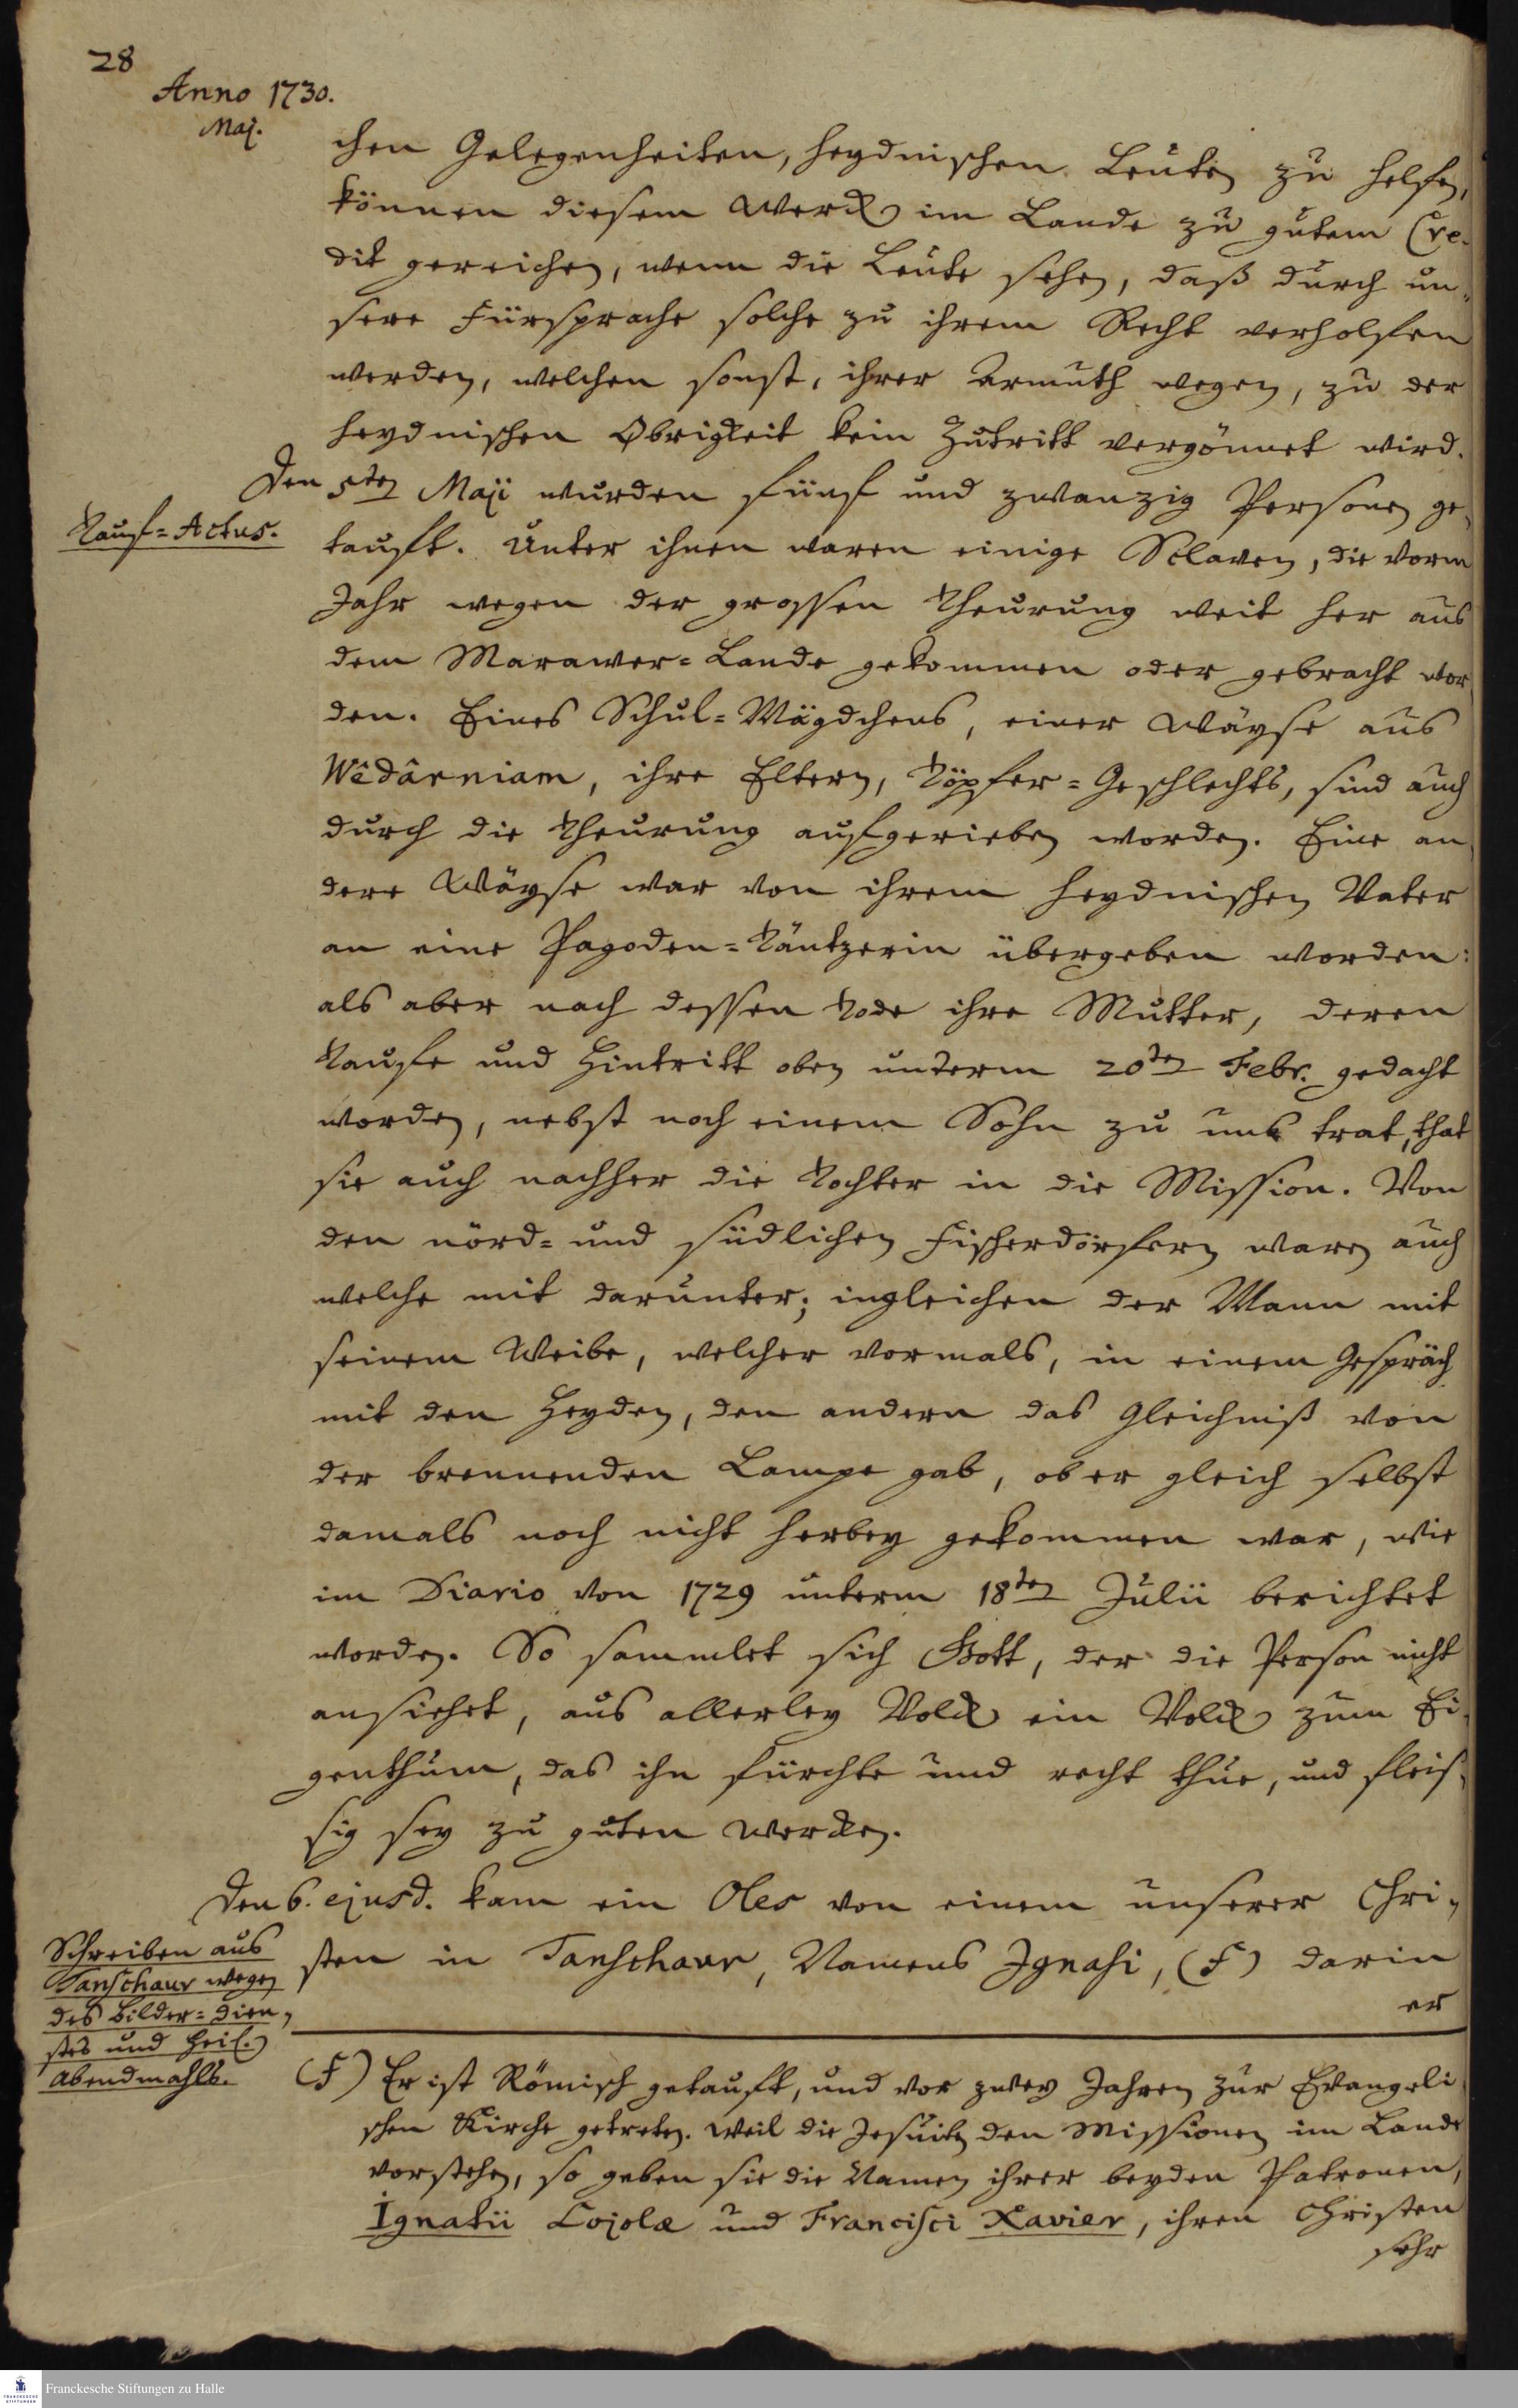 28
Anno 1730.
Maj.
chen Gelegenheiten, heydnischen Leuten zu helfen,
können diesem Werck im Lande zu gutem Cre-
dit gereichen, wenn die Leute sehen, daß durch un-
sere Fürsprache solche zu ihrem Recht verholfen
werden, welchen sonst, ihrer Armuth wegen, zu der
heydnischen Obrigkeit kein Zutritt vergönnet wird.
Den 5ten Maji wurden fünf und zwanzig Personen ge-
Tauf-Actus.
tauft. Unter ihnen waren einige Sclaven, die vorm
Jahr wegen der grossen Theurung weit her aus
dem Marawer-Lande gekommen oder gebracht wor-
den. Eines Schul-Mägdchens, einer Wäyse aus
Wêdârniam, ihre Eltern, Töpfer-Geschlechts, sind auch
durch die Theurung aufgerieben worden. Eine an-
dere Wäyse war von ihrem heydnischen Vater
an eine Pagoden-Täntzerin übergeben worden:
als aber nach dessen Tode ihre Mutter, deren
Taufe und Hintritt oben unterm 20ten Febr. gedacht
worden, nebst noch einem Sohn zu uns trat, that
sie auch nachher die Tochter in die Mission. Von
den nörd- und südlichen Fischerdörfern waren auch
welche mit darunter; ingleichen der Mann mit
seinem Weibe, welcher vormals, in einem Gespräch
mit den Heyden, den andern das Gleichniß von
der brennenden Lampe gab, ob er gleich selbst
damals noch nicht herbey gekommen war, wie
im Diario von 1729 unterm 18ten Julii berichtet
worden. So sammlet sich Gott, der die Person nicht
ansiehet, aus allerley Volck ein Volck zum Ei-
genthum, das ihn fürchte und recht thue, und fleis-
sig sey zu guten Wercken.
Den 6. ejusd. kam ein Oles von einem unserer Chri-
Schreiben aus
Tanschaur wegen
des Bilder-Dien-
stes und Heil.
Abendmahls.
sten in Tanschaur, Namens Ignasi, (F) darin
er
(F) Er ist Römisch getauft, und vor zwey Jahren zur Evangeli-
schen Kirche getreten. Weil die Jesuiten den Missionen im Lande
vorstehen, so geben sie die Namen ihrer beyden Patronen,
Ignatii Lojolæ und Francisci Xavier, ihren Christen
sehr
Franckesche Stiftungen zu Halle